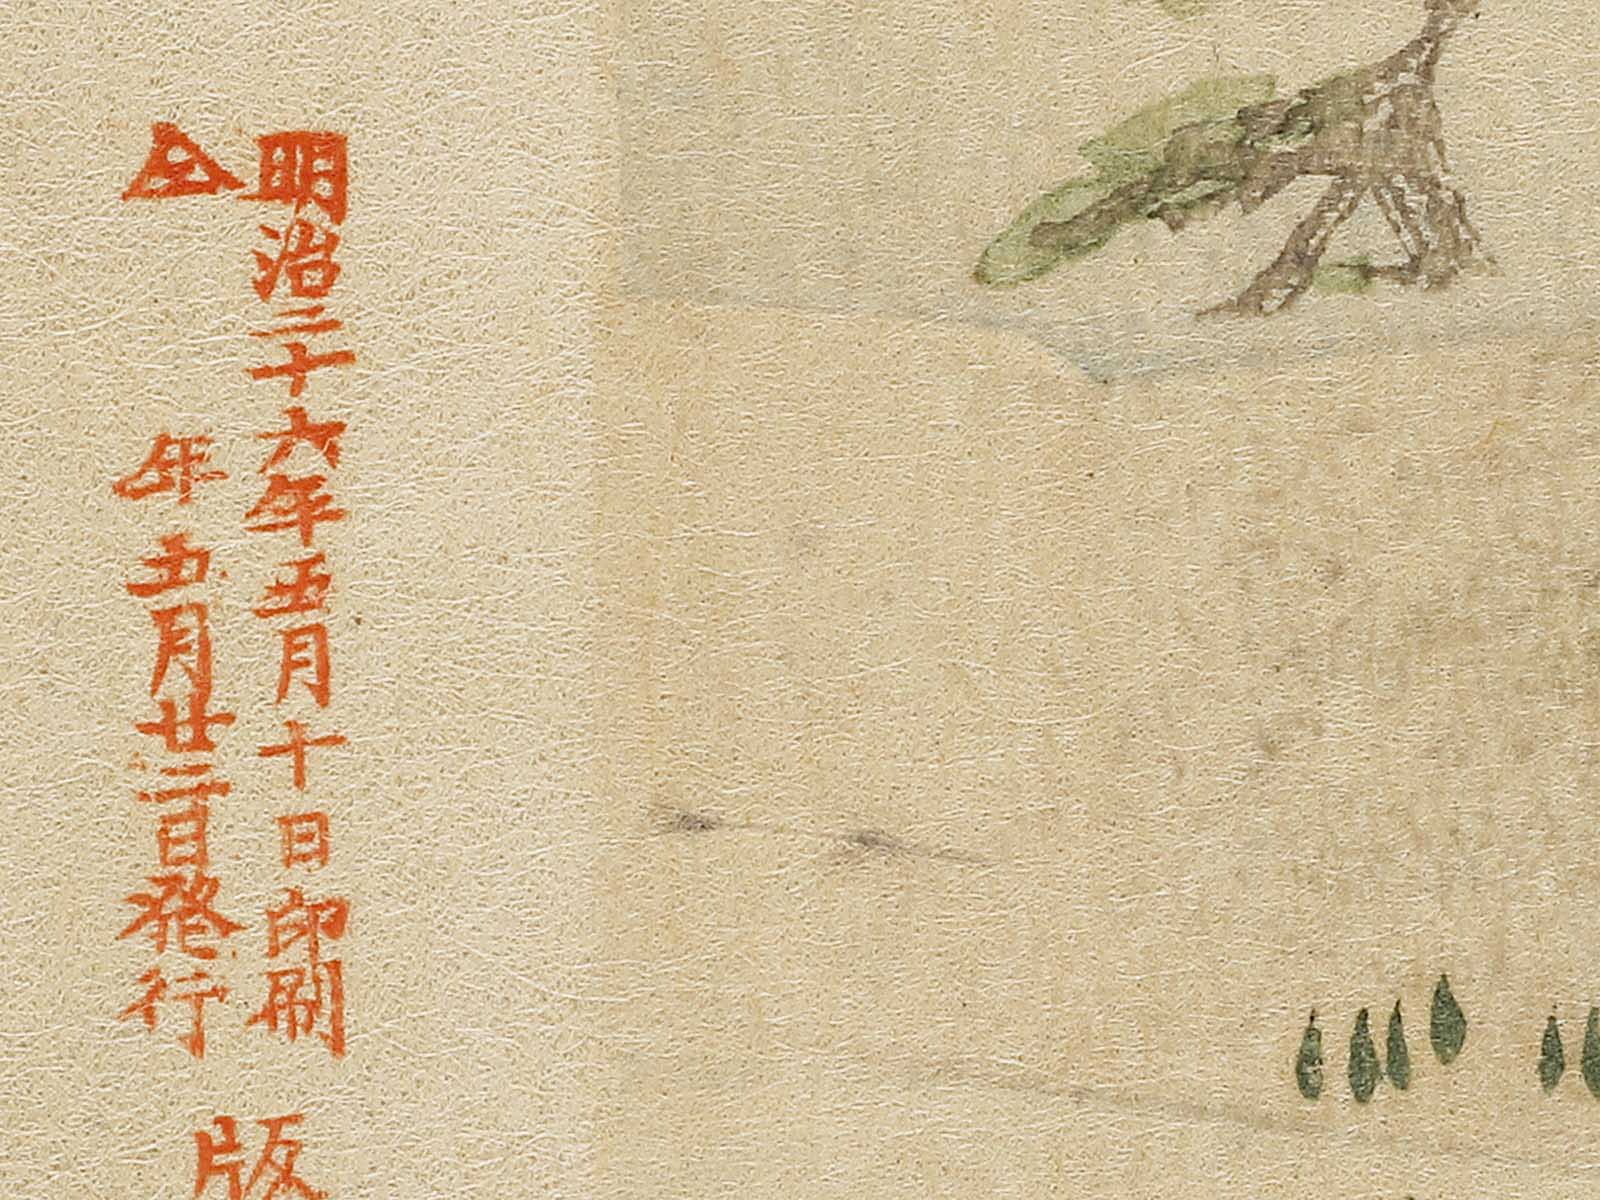 明治二十六年五月十日印刷
仝年五月廿二日発行
版